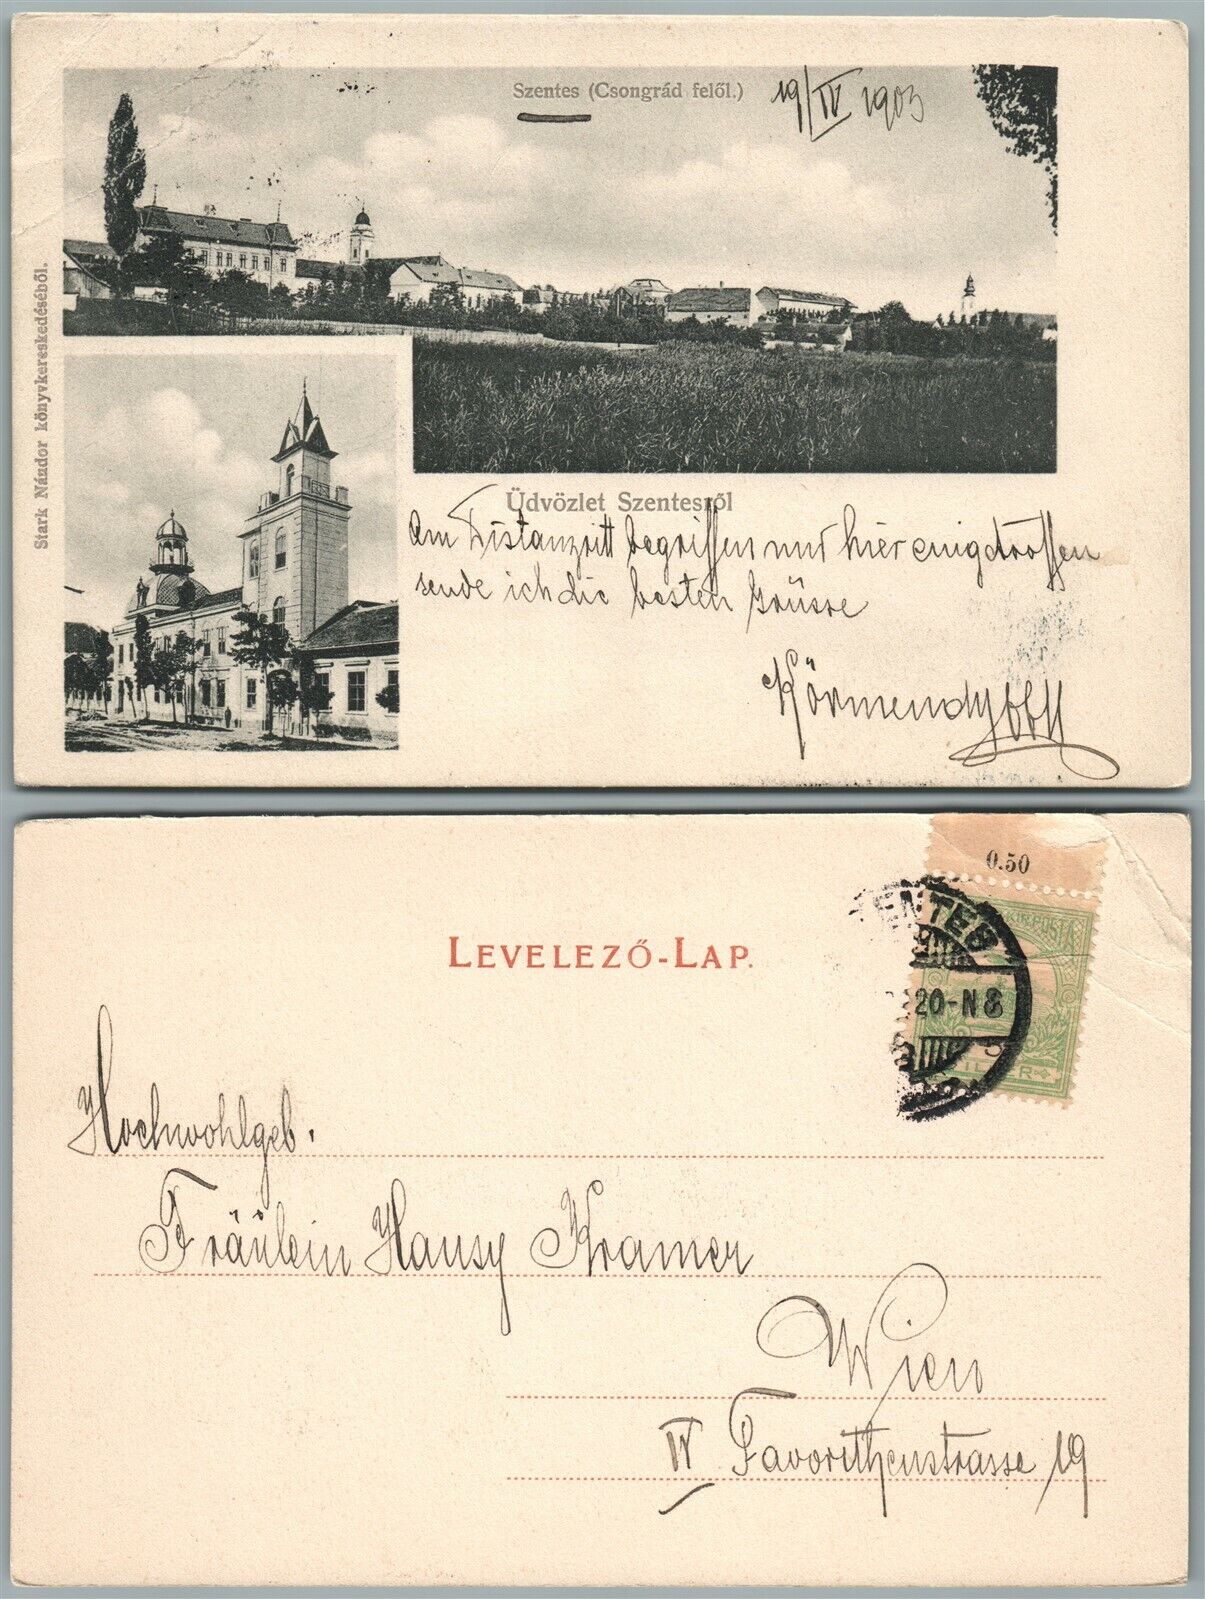 Szentes (Csongrád felől.)
19/IV 1903
Stark Nándor könyvkereskedéséből.
Üdvözlet Szentesről
Am Distanzritt begriffen und hier eingetroffen
sende ich die besten Grüsse
Körmendy
0.50
LEVELEZŐ-LAP.
KIR. POSTA
20-N8
Hochwohlgeb.
Fräulein Hansy Kramer
Wien
IV Favorithenstrasse 19